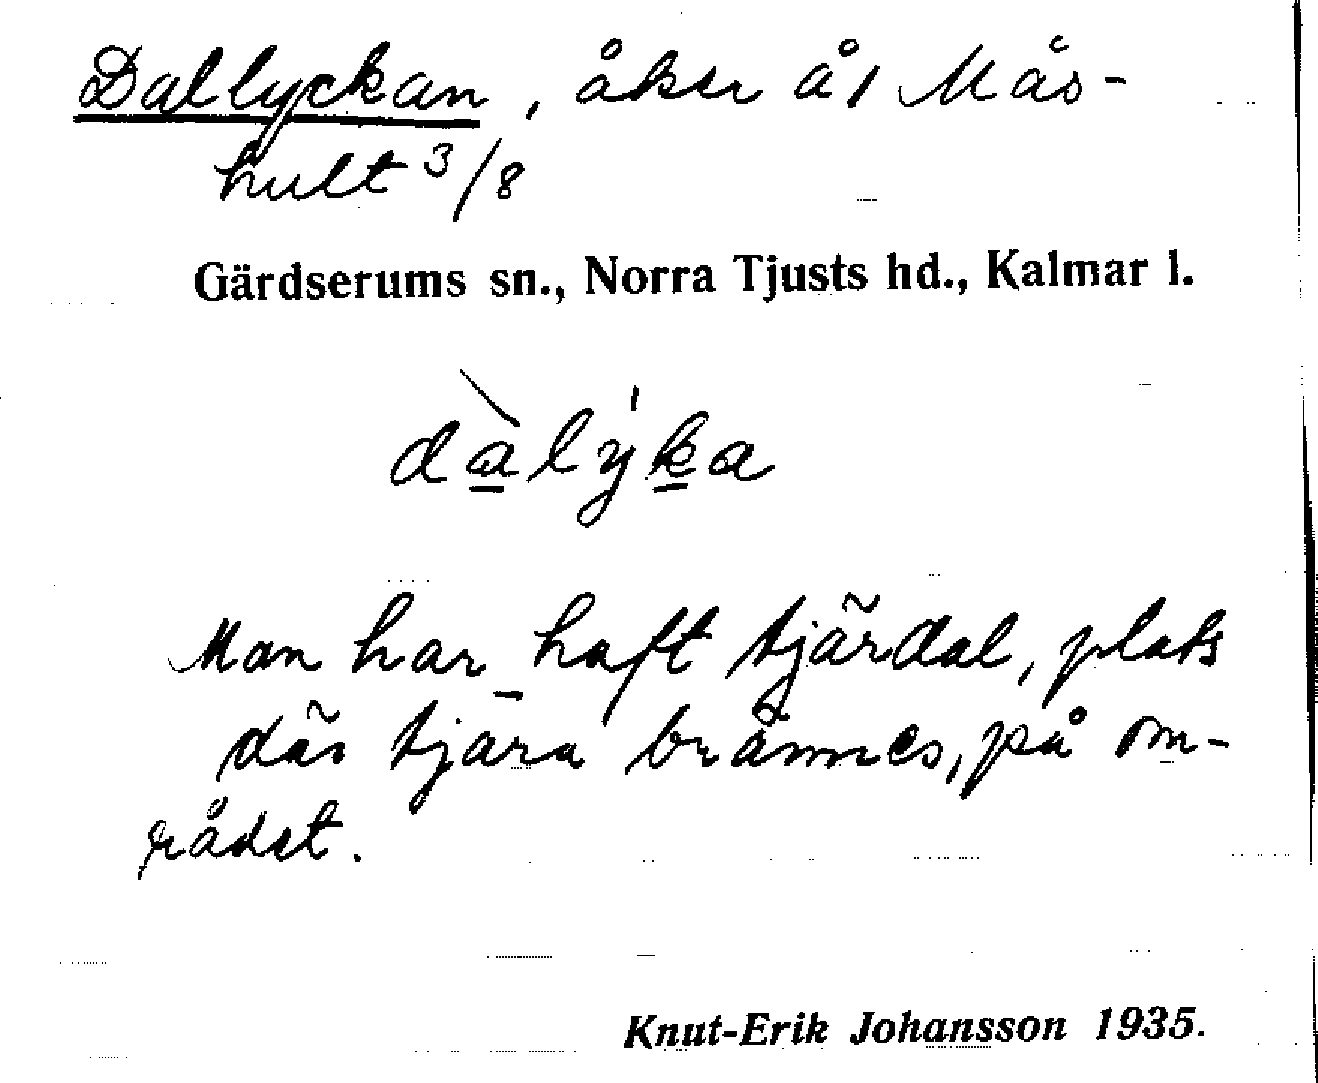 Dallyckan, åker å 1 Mås-
hult 3/8
Gärdserums sn., Norra Tjusts hd., Kalmar l.
dàlýka
Man har haft tjärdal, plats
där tjära brännes, på om-
rådet.
Knut-Erik Johansson 1935.